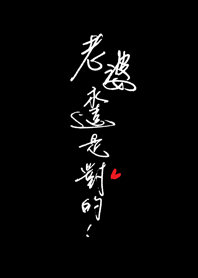 老婆
永遠
是
對
的！